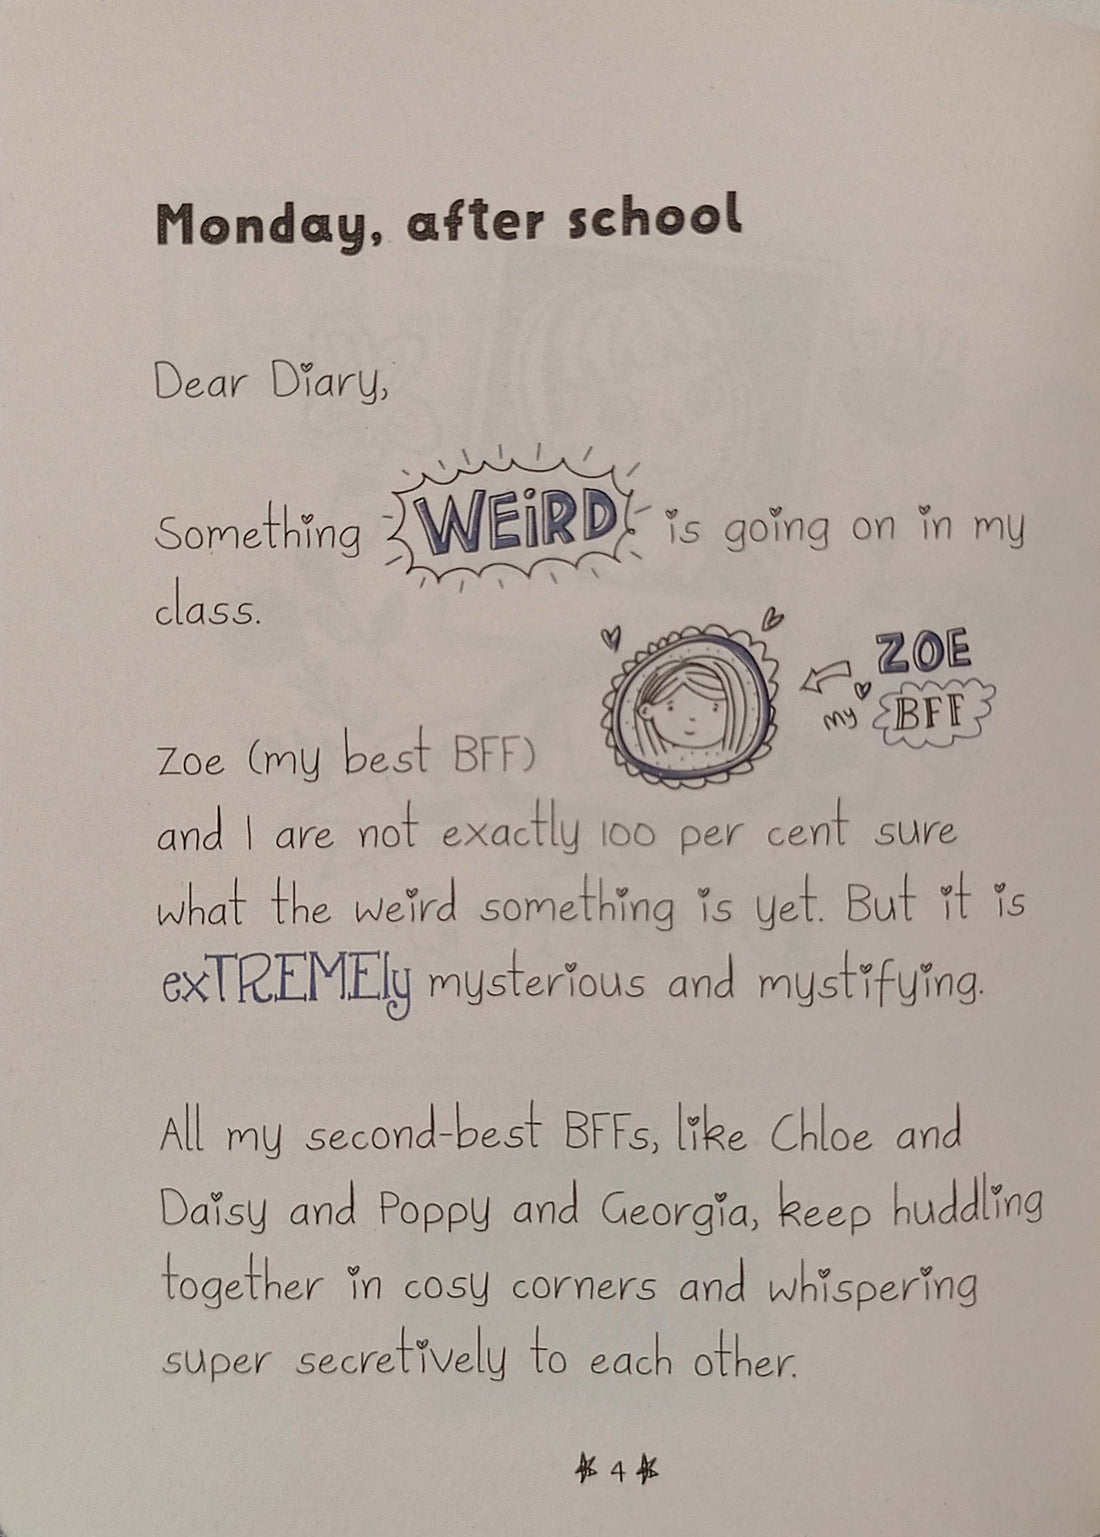 Monday, after school
Dear Diary,
Something WEiRD is going on in my
class.
ZOE
my BFF
Zoe (my best BFF)
and I are not exactly 100 per cent sure
what the weird something is yet. But it is
exTREMEly mysterious and mystifying.
All my second-best BFFs, like Chloe and
Daisy and Poppy and Georgia, keep huddling
together in cosy corners and whispering
super secretively to each other.
4